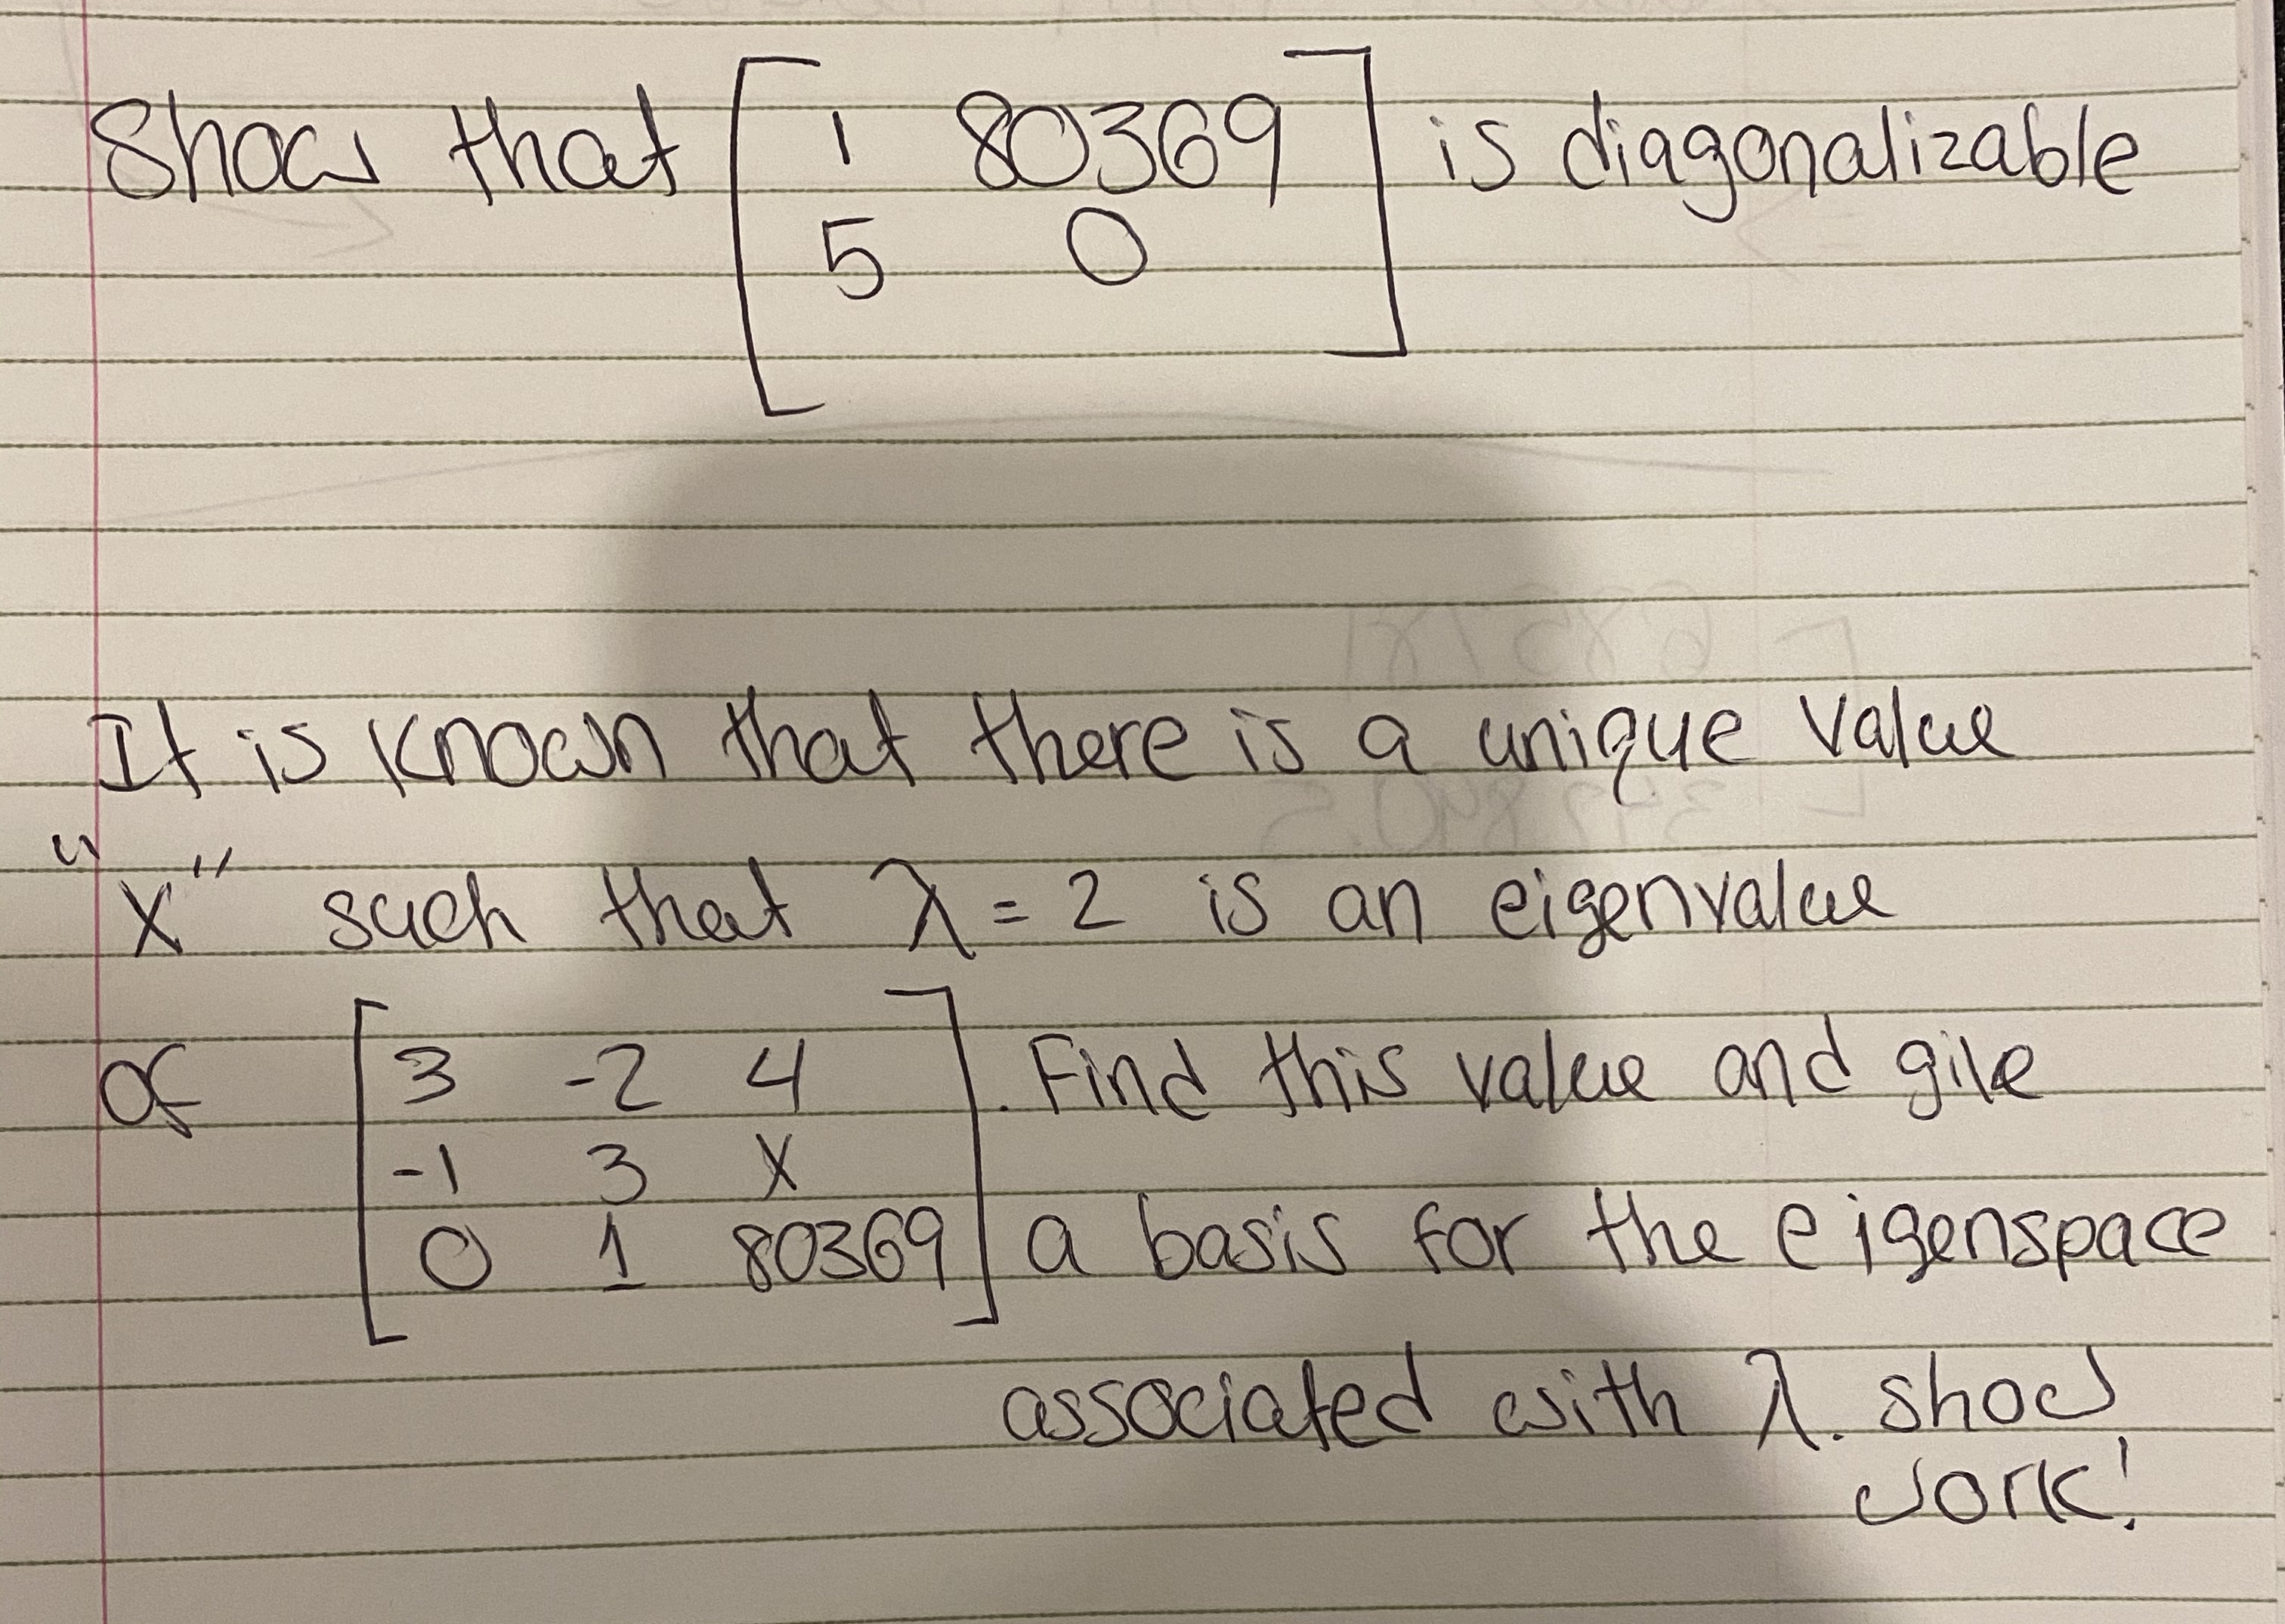 Show that [ 1 80369 ] is diagonalizable
5 0
It is known that there is a unique value
"X" such that λ = 2 is an eigenvalue
of [ 3 -2 4 ] . Find this value and give
-1 3 X
0 1 80369 a basis for the eigenspace
associated with λ. show
work!